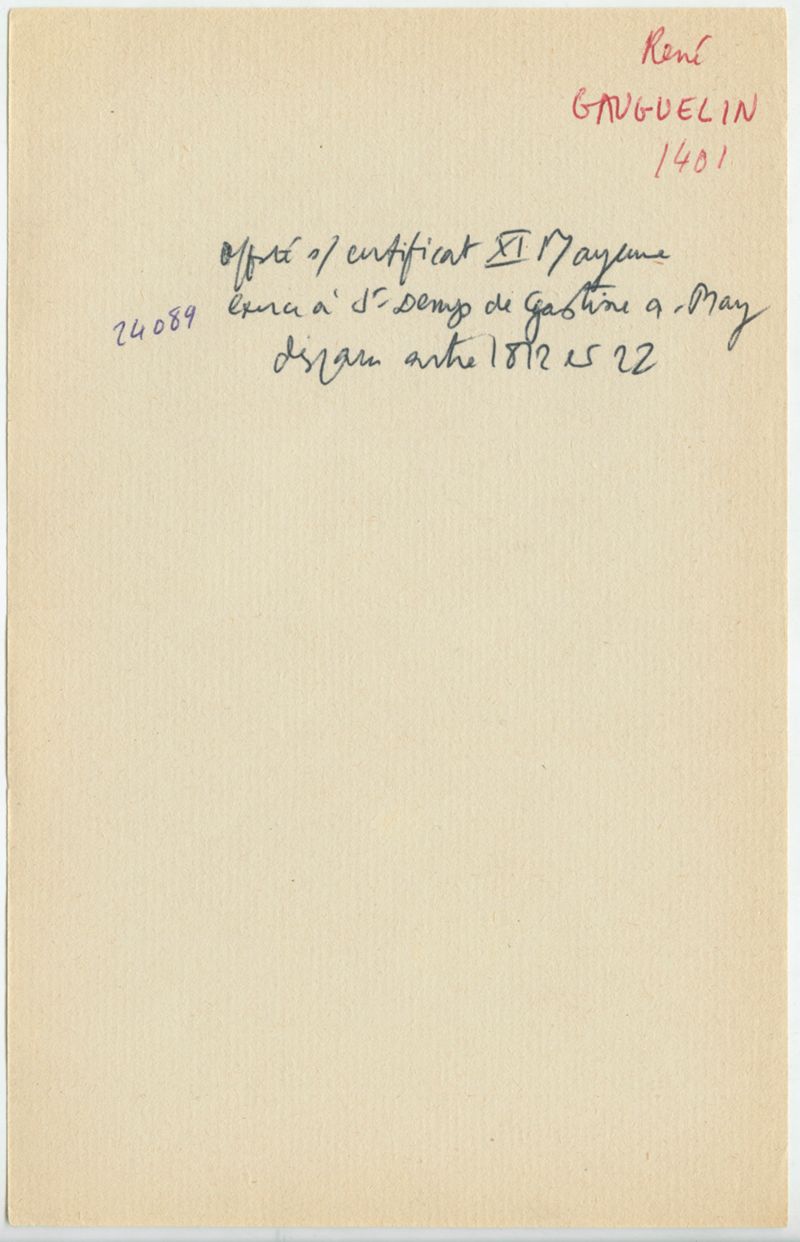 René
GAUGUELIN
1401
off. sté s/ certificat XI Mayenne
24089
exerce à St Denys de Gastine a. May
disparu entre 1812 et 22